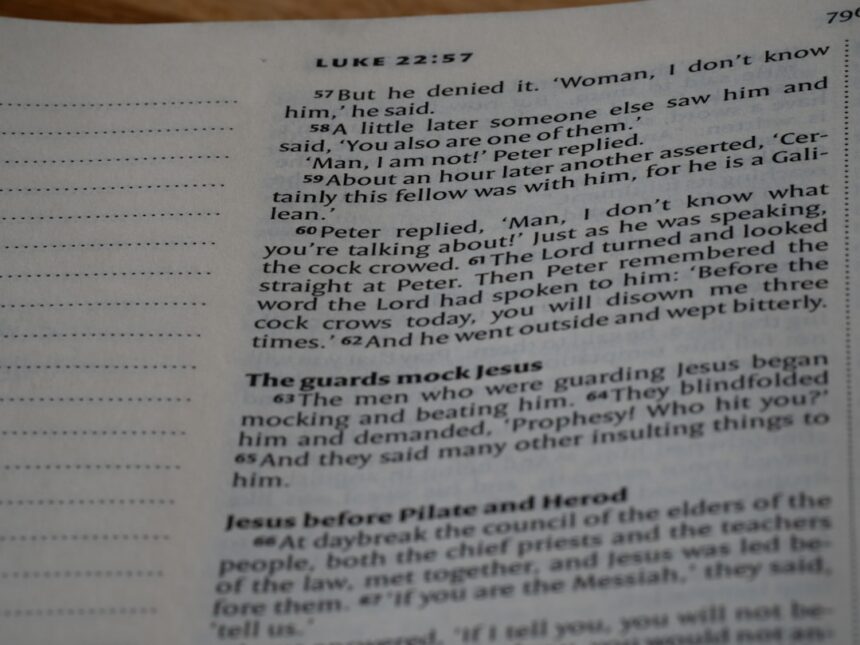 790
LUKE 22:57
57 But he denied it. ‘Woman, I don’t know
him,’ he said.
58 A little later someone else saw him and
said, ‘You also are one of them.’
‘Man, I am not!’ Peter replied.
59 About an hour later another asserted, ‘Cer-
tainly this fellow was with him, for he is a Gali-
lean.’
60 Peter replied, ‘Man, I don’t know what
you’re talking about!’ Just as he was speaking,
the cock crowed. 61 The Lord turned and looked
straight at Peter. Then Peter remembered the
word the Lord had spoken to him: ‘Before the
cock crows today, you will disown me three
times.’ 62 And he went outside and wept bitterly.
The guards mock Jesus
63 The men who were guarding Jesus began
mocking and beating him. 64 They blindfolded
him and demanded, ‘Prophesy! Who hit you?’
65 And they said many other insulting things to
him.
Jesus before Pilate and Herod
66 At daybreak the council of the elders of the
people, both the chief priests and the teachers
of the law, met together, and Jesus was led be-
fore them. 67 ‘If you are the Messiah,’ they said,
‘tell us.’
answered, ‘If I tell you, you will not be-
you would not an-